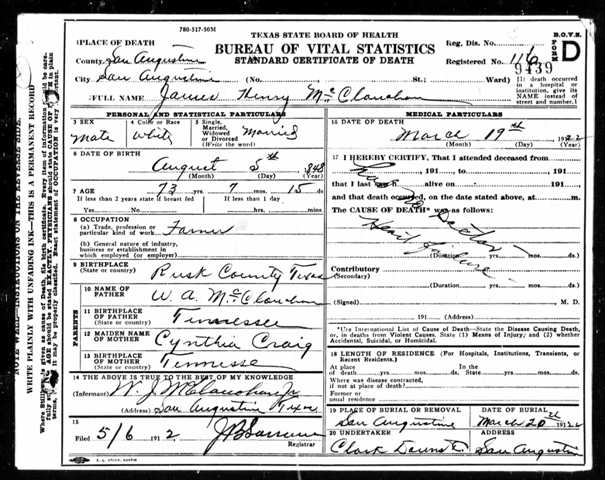 780-517-5031
TEXAS STATE BOARD OF HEALTH
B.O.V.S.
FORM D
BUREAU OF VITAL STATISTICS
STANDARD CERTIFICATE OF DEATH
Reg. Dis. No.
Registered No. 116
9439
1 PLACE OF DEATH
County San Augustine
City San Augustine (No. St.; Ward)
(If death occurred in a hospital or institution, give its NAME instead of street and number.)
FULL NAME James Henry
PERSONAL AND STATISTICAL PARTICULARS
3 SEX Male
4 Color or Race White
5 Single, Married, Widowed or Divorced (Write the word) Married
6 DATE OF BIRTH
August 5th
(Month) (Day) (Year)
7 AGE
73 yrs. 7 mos. 15 ds.
If less than 2 years state if breast fed
Yes No
If less than 1 day
hrs. min.
8 OCCUPATION
(a) Trade, profession or particular kind of work Farmer
(b) General nature of industry, business or establishment in which employed (or employer)
9 BIRTHPLACE (State or country) Rusk County Texas
PARENTS
10 NAME OF FATHER W. A.
11 BIRTHPLACE OF FATHER (State or country) Tennessee
12 MAIDEN NAME OF MOTHER Cynthia Craig
13 BIRTHPLACE OF MOTHER (State or country) Tennesse
14 THE ABOVE IS TRUE TO THE BEST OF MY KNOWLEDGE
(Informant) W. J.
(Address) San Augustine Texas
15
Filed 5/6 1912
Registrar
MEDICAL PARTICULARS
16 DATE OF DEATH
March 19th
(Month) (Day) (Year)
17 I HEREBY CERTIFY, That I attended deceased from
, 191 , to , 191 ,
that I last saw h alive on , 191 ,
and that death occurred, on the date stated above, at m.
The CAUSE OF DEATH* was as follows:
Doctor
Heart failure
(Duration) yrs. mos. ds.
Contributory
(Secondary)
(Duration) yrs. mos. ds.
(Signed) M. D.
, 191 (Address)
*Use International List of Cause of Death—State the Disease Causing Death, or, in deaths from Violent Causes, State (1) Means of Injury; and (2) whether Accidental, Suicidal, or Homicidal.
18 LENGTH OF RESIDENCE (For Hospitals, Institutions, Transients, or Recent Residents.)
At place of death yrs. mos. ds. In the State yrs. mos. ds.
Where was disease contracted, if not at place of death?
Former or usual residence
19 PLACE OF BURIAL OR REMOVAL
San Augustine
DATE OF BURIAL
March 20
20 UNDERTAKER
Clark
ADDRESS
San Augustine
WRITE PLAINLY WITH UNFADING INK—THIS IS A PERMANENT RECORD